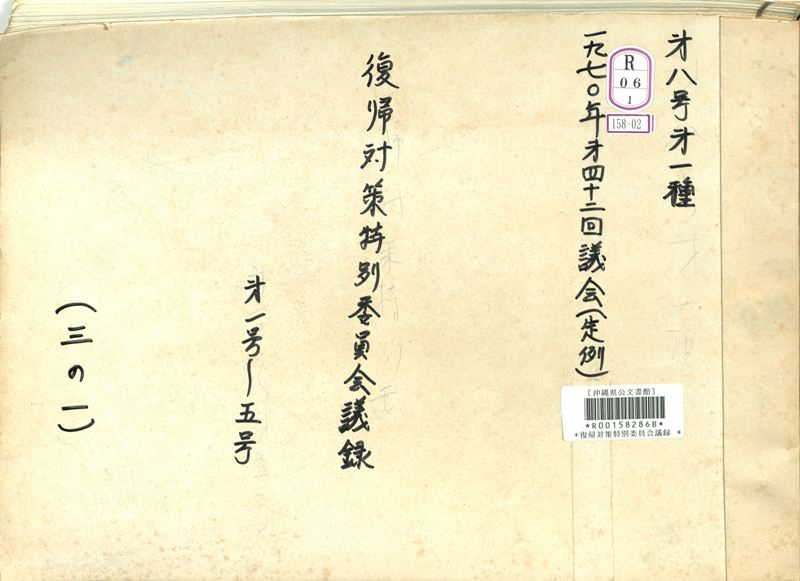 才八号才一種
一九七〇年才四十二回議会(定例)
R
06
1
158-02
[沖縄県公文書館]
*R00158286B*
*復帰対策特別委員会議録 *
復帰対策特別委員会議録
才一号〜五号
(三の一)